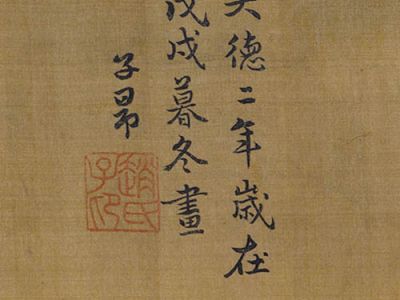 大德二年歲在
戊戌暮冬畫
子昂
趙氏子印